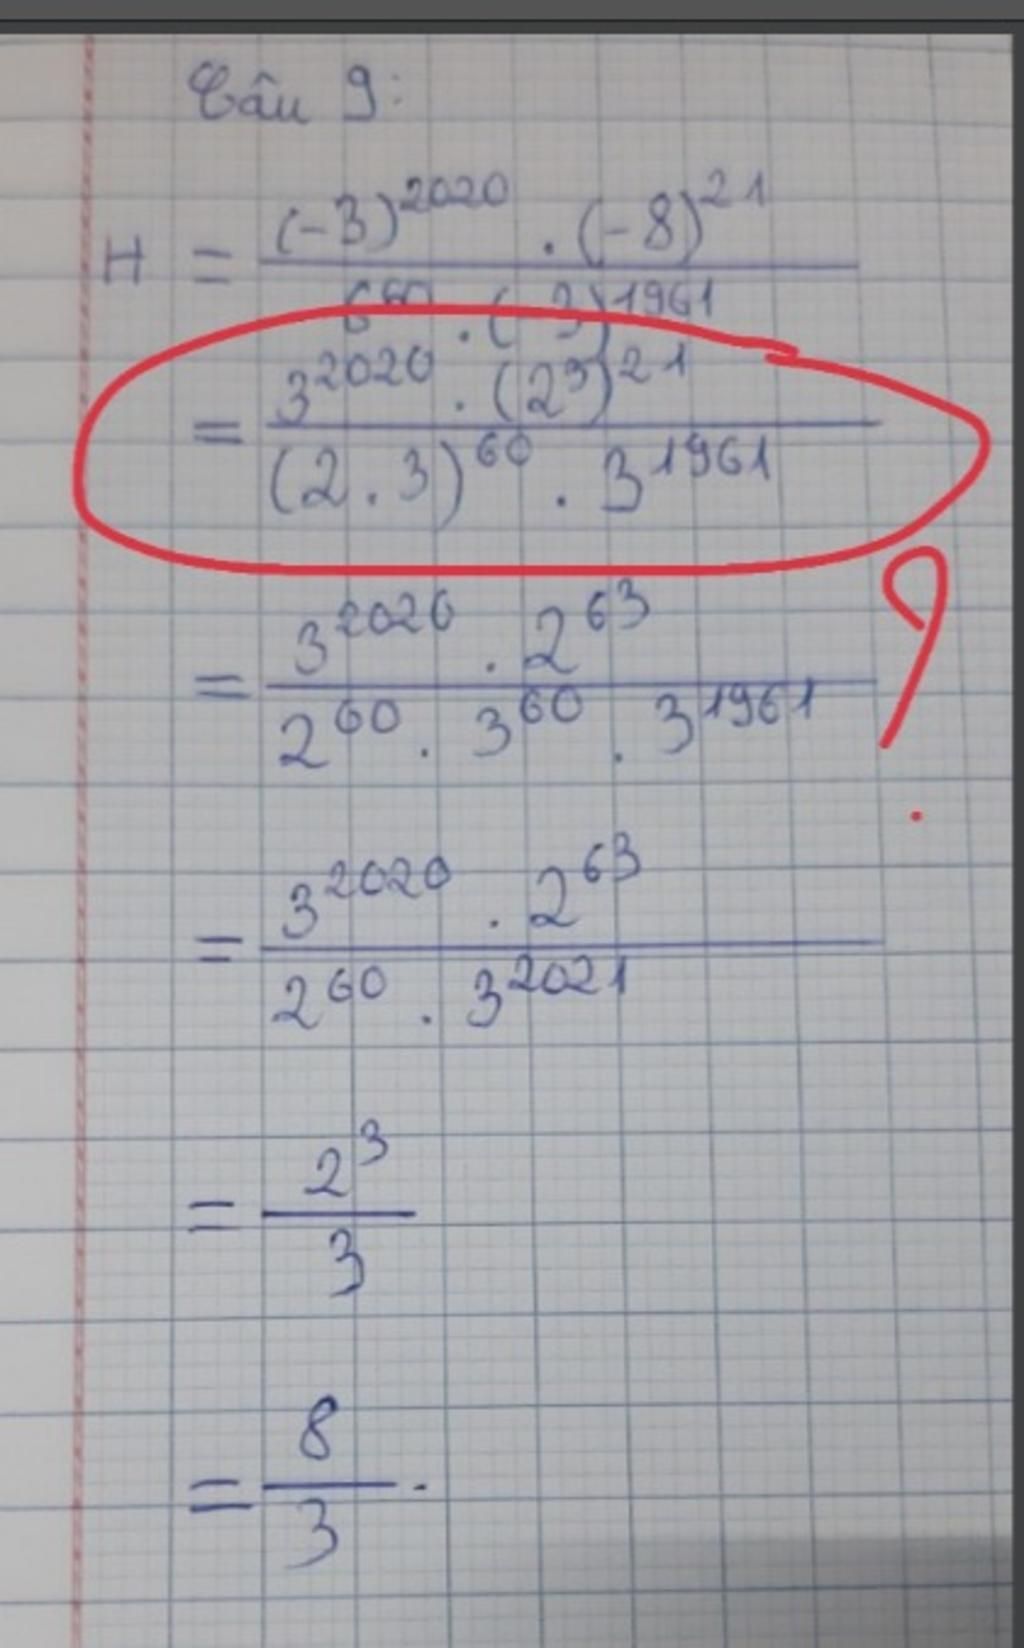 Câu 9:
H = \frac{(-3)^{2020} . (-8)^{21}}{6^{60} . (-3)^{1961}}
= \frac{3^{2020} . (2^3)^{21}}{(2 . 3)^{60} . 3^{1961}}
= \frac{3^{2020} . 2^{63}}{2^{60} . 3^{60} . 3^{1961}}
= \frac{3^{2020} . 2^{63}}{2^{60} . 3^{2021}}
= \frac{2^3}{3}
= \frac{8}{3} .
?